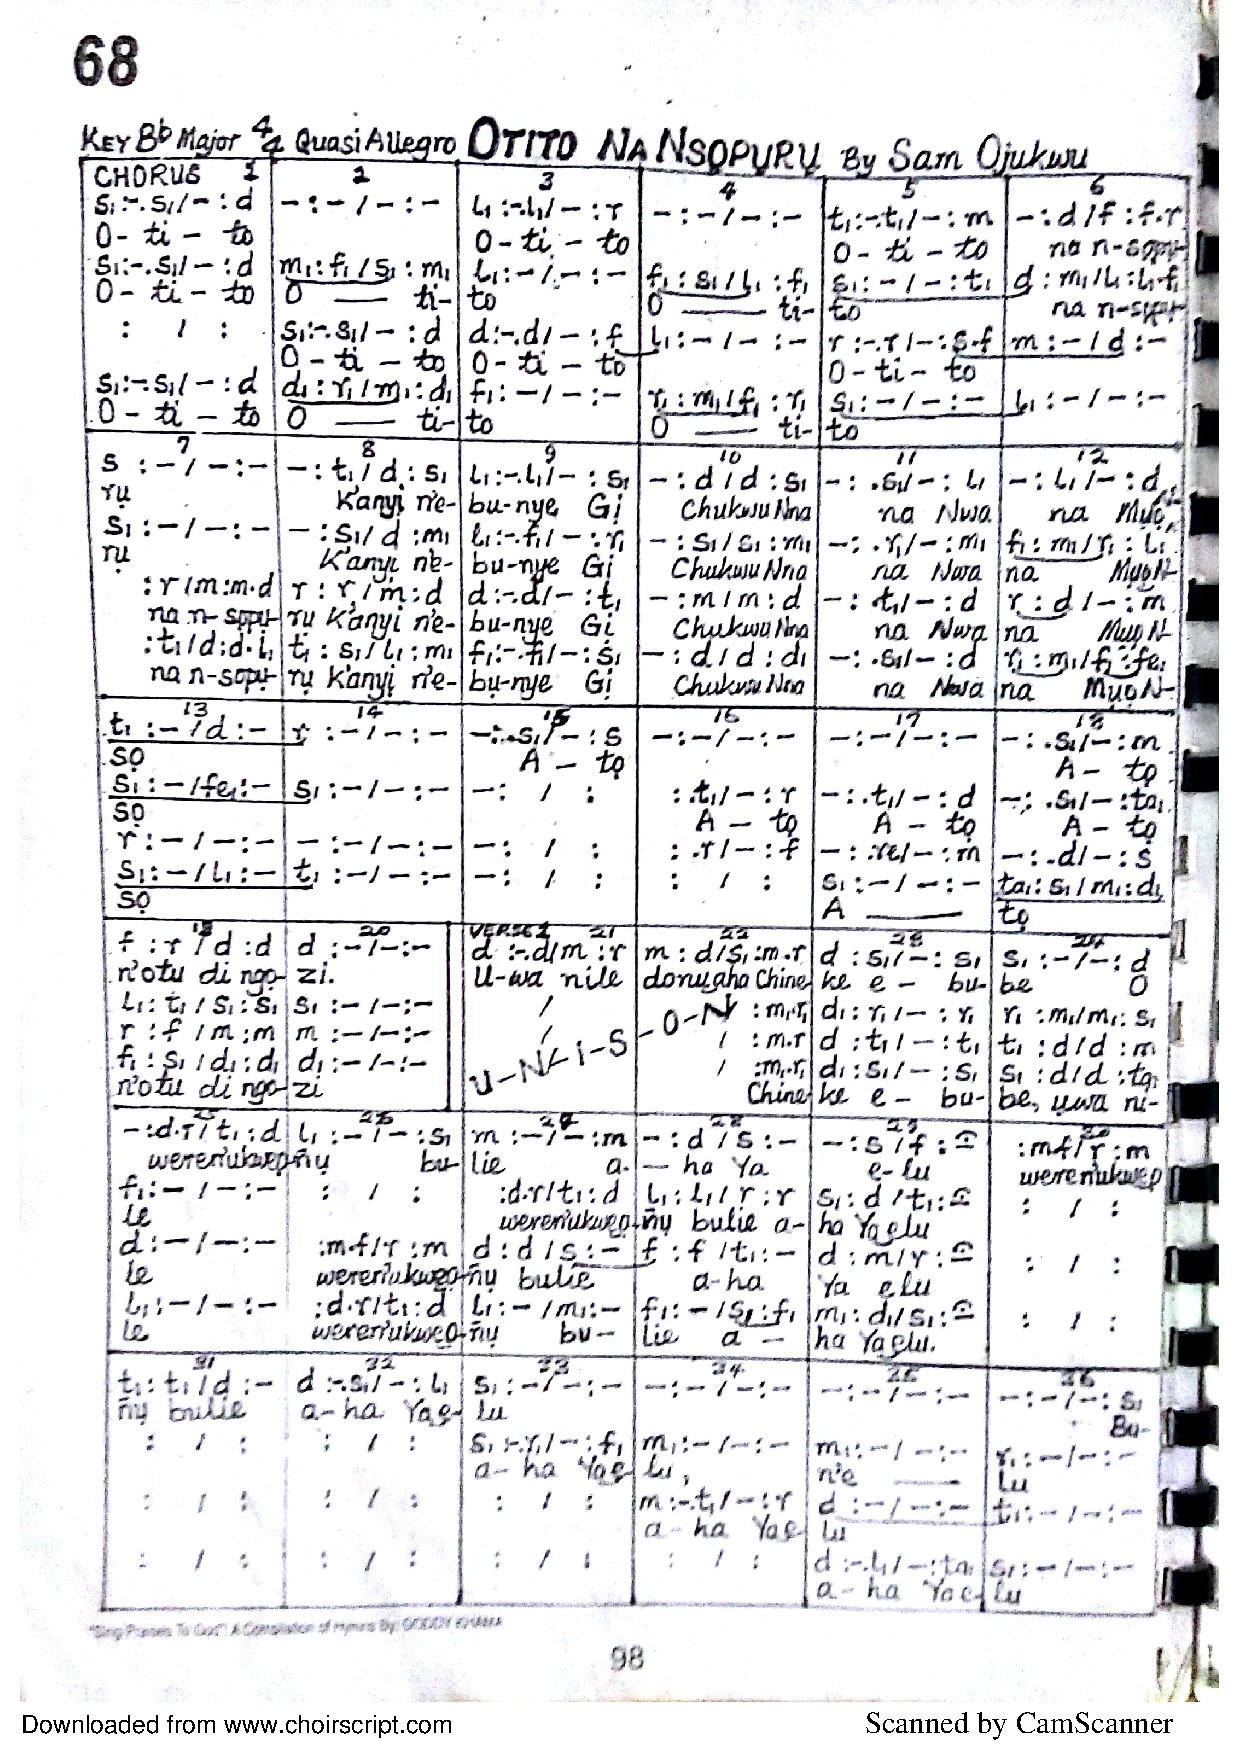 68
KEY Bb Major 4/4 Quasi Allegro OTITO NA NSỌPỤRỤ By Sam Ojukwu
CHORUS 1 2 3 4 5 6
s₁:-.s₁/-:d -:-/-:- l₁:-.l₁/-:r -:-/-:- t₁:-.t₁/-:m -:d/f:f.r
O-ti-to O-ti-to O-ti-to na n-sọpụ-
s₁:-.s₁/-:d m₁:f₁/s₁:m₁ l₁:-/-:- f₁:s₁/l₁:f₁ s₁:-/-:t₁ d:m₁/l₁:l₁.f₁
O-ti-to O ti- to O ti- to na n-sọpụ-
: / : s₁:-.s₁/-:d d:-.d/-:f l₁:-/-:- r:-.r/-:s.f m:-/d:-
O-ti-to O-ti-to O-ti-to
s₁:-.s₁/-:d d₁:r₁/m₁:d₁ f₁:-/-:- r₁:m₁/f₁:r₁ s₁:-/-:- l₁:-/-:-
O-ti-to O ti- to O ti- to
7 8 9 10 11 12
s:-/-:- -:t₁/d:s₁ l₁:-.l₁/-:s₁ -:d/d:s₁ -:.s₁/-:l₁ -:l₁/-:d
rụ K'anyị n'e- bu-nye Gị Chukwu Nna na Nwa na Mụọ
s₁:-/-:- -:s₁/d:m₁ l₁:-.f₁/-:r₁ -:s₁/s₁:m₁ -:.r₁/-:m₁ f₁:m₁/r₁:l₁
rụ K'anyị n'e- bu-nye Gị Chukwu Nna na Nwa na MụọN-
:r/m:m.d r:r/m:d d:-.d/-:t₁ -:m/m:d -:.t₁/-:d r:d/-:m
na n-sọpụ- rụ K'anyị n'e- bu-nye Gị Chukwu Nna na Nwa na Mụọ N-
:t₁/d:d.l₁ t₁:s₁/l₁:m₁ f₁:-.f₁/-:s₁ -:d/d:d₁ -:.s₁/-:d r₁:m₁/f₁:fe₁
na n-sọpụ- rụ K'anyị n'e- bu-nye Gị Chukwu Nna na Nwa na MụọN-
13 14 15 16 17 18
t₁:-/d:- r:-/-:- -:.s₁/-:s -:-/-:- -:-/-:- -:.s₁/-:m
sọ A-tọ A-tọ
s₁:-/fe₁:- s₁:-/-:- -: / : :.t₁/-:r -:.t₁/-:d -:.s₁/-:ta₁
sọ A-tọ A-tọ A-tọ
r:-/-:- -:-/-:- -: / : :.r/-:f -:.re/-:m -:.d/-:s
s₁:-/l₁:- t₁:-/-:- -: / : : / : s₁:-/-:- ta₁:s₁/m₁:d₁
sọ A tọ
20 VERSE 1 21 22 23 24
f:r/d:d d:-/-:- d:-.d/m:r m:d/s₁:m.r d:s₁/-:s₁ s₁:-/-:d
n'otu di ngọ- zi. U-wa nile donụaha Chine ke e-bu- be O
l₁:t₁/s₁:s₁ s₁:-/-:- / :m₁.r₁ d₁:r₁/-:r₁ r₁:m₁/m₁:s₁
r:f/m:m m:-/-:- U-N-I-S-O-N / :m.r d:t₁/-:t₁ t₁:d/d:m
f₁:s₁/d₁:d₁ d₁:-/-:- / :m₁.r₁ d₁:s₁/-:s₁ s₁:d/d:ta₁
n'otu di ngọ- zi Chine ke e-bu- be, ụwa ni-
25 26 27 28 29 30
-:d.r/t₁:d l₁:-/-:s₁ m:-/-:m -:d/s:- -:s/f:- :m.f/r:m
weren'ukwep-ñụ bu- lie a- ha Ya e-lu weren'ukwep
f₁:-/-:- : / : :d.r/t₁:d l₁:l₁/r:r s₁:d/t₁:- : / :
le weren'ukwep- ñụ bulie a- ha Yaelu
d:-/-:- :m.f/r:m d:d/s:- f:f/t₁:- d:m/r:- : / :
le weren'ukwep- ñụ bulie a-ha Ya elu
l₁:-/-:- :d.r/t₁:d l₁:-/m₁:- f₁:-/s₁:f₁ m₁:d₁/s₁:- : / :
le weren'ukwep- ñụ bu- lie a- ha Yaelu.
31 32 33 34 35 36
t₁:t₁/d:- d:-.s₁/-:l₁ s₁:-/-:- -:-/-:- -:-/-:- -:-/-:s₁
ñụ bulie a-ha Yae- lu Bu-
: / : : / : s₁:-.r₁/-:f₁ m₁:-/-:- m₁:-/-:- r₁:-/-:-
a-ha Yae lu, n'e lu
: / : : / : : / : m:-.t₁/-:r d:-/-:- t₁:-/-:-
a-ha Yae lu
: / : : / : : / : : / : d:-.l₁/-:ta₁ s₁:-/-:-
a-ha Yae- lu
"Sing Praises To God": A Compilation of Hymns By: GODDY
98
Downloaded from www.choirscript.com
Scanned by CamScanner